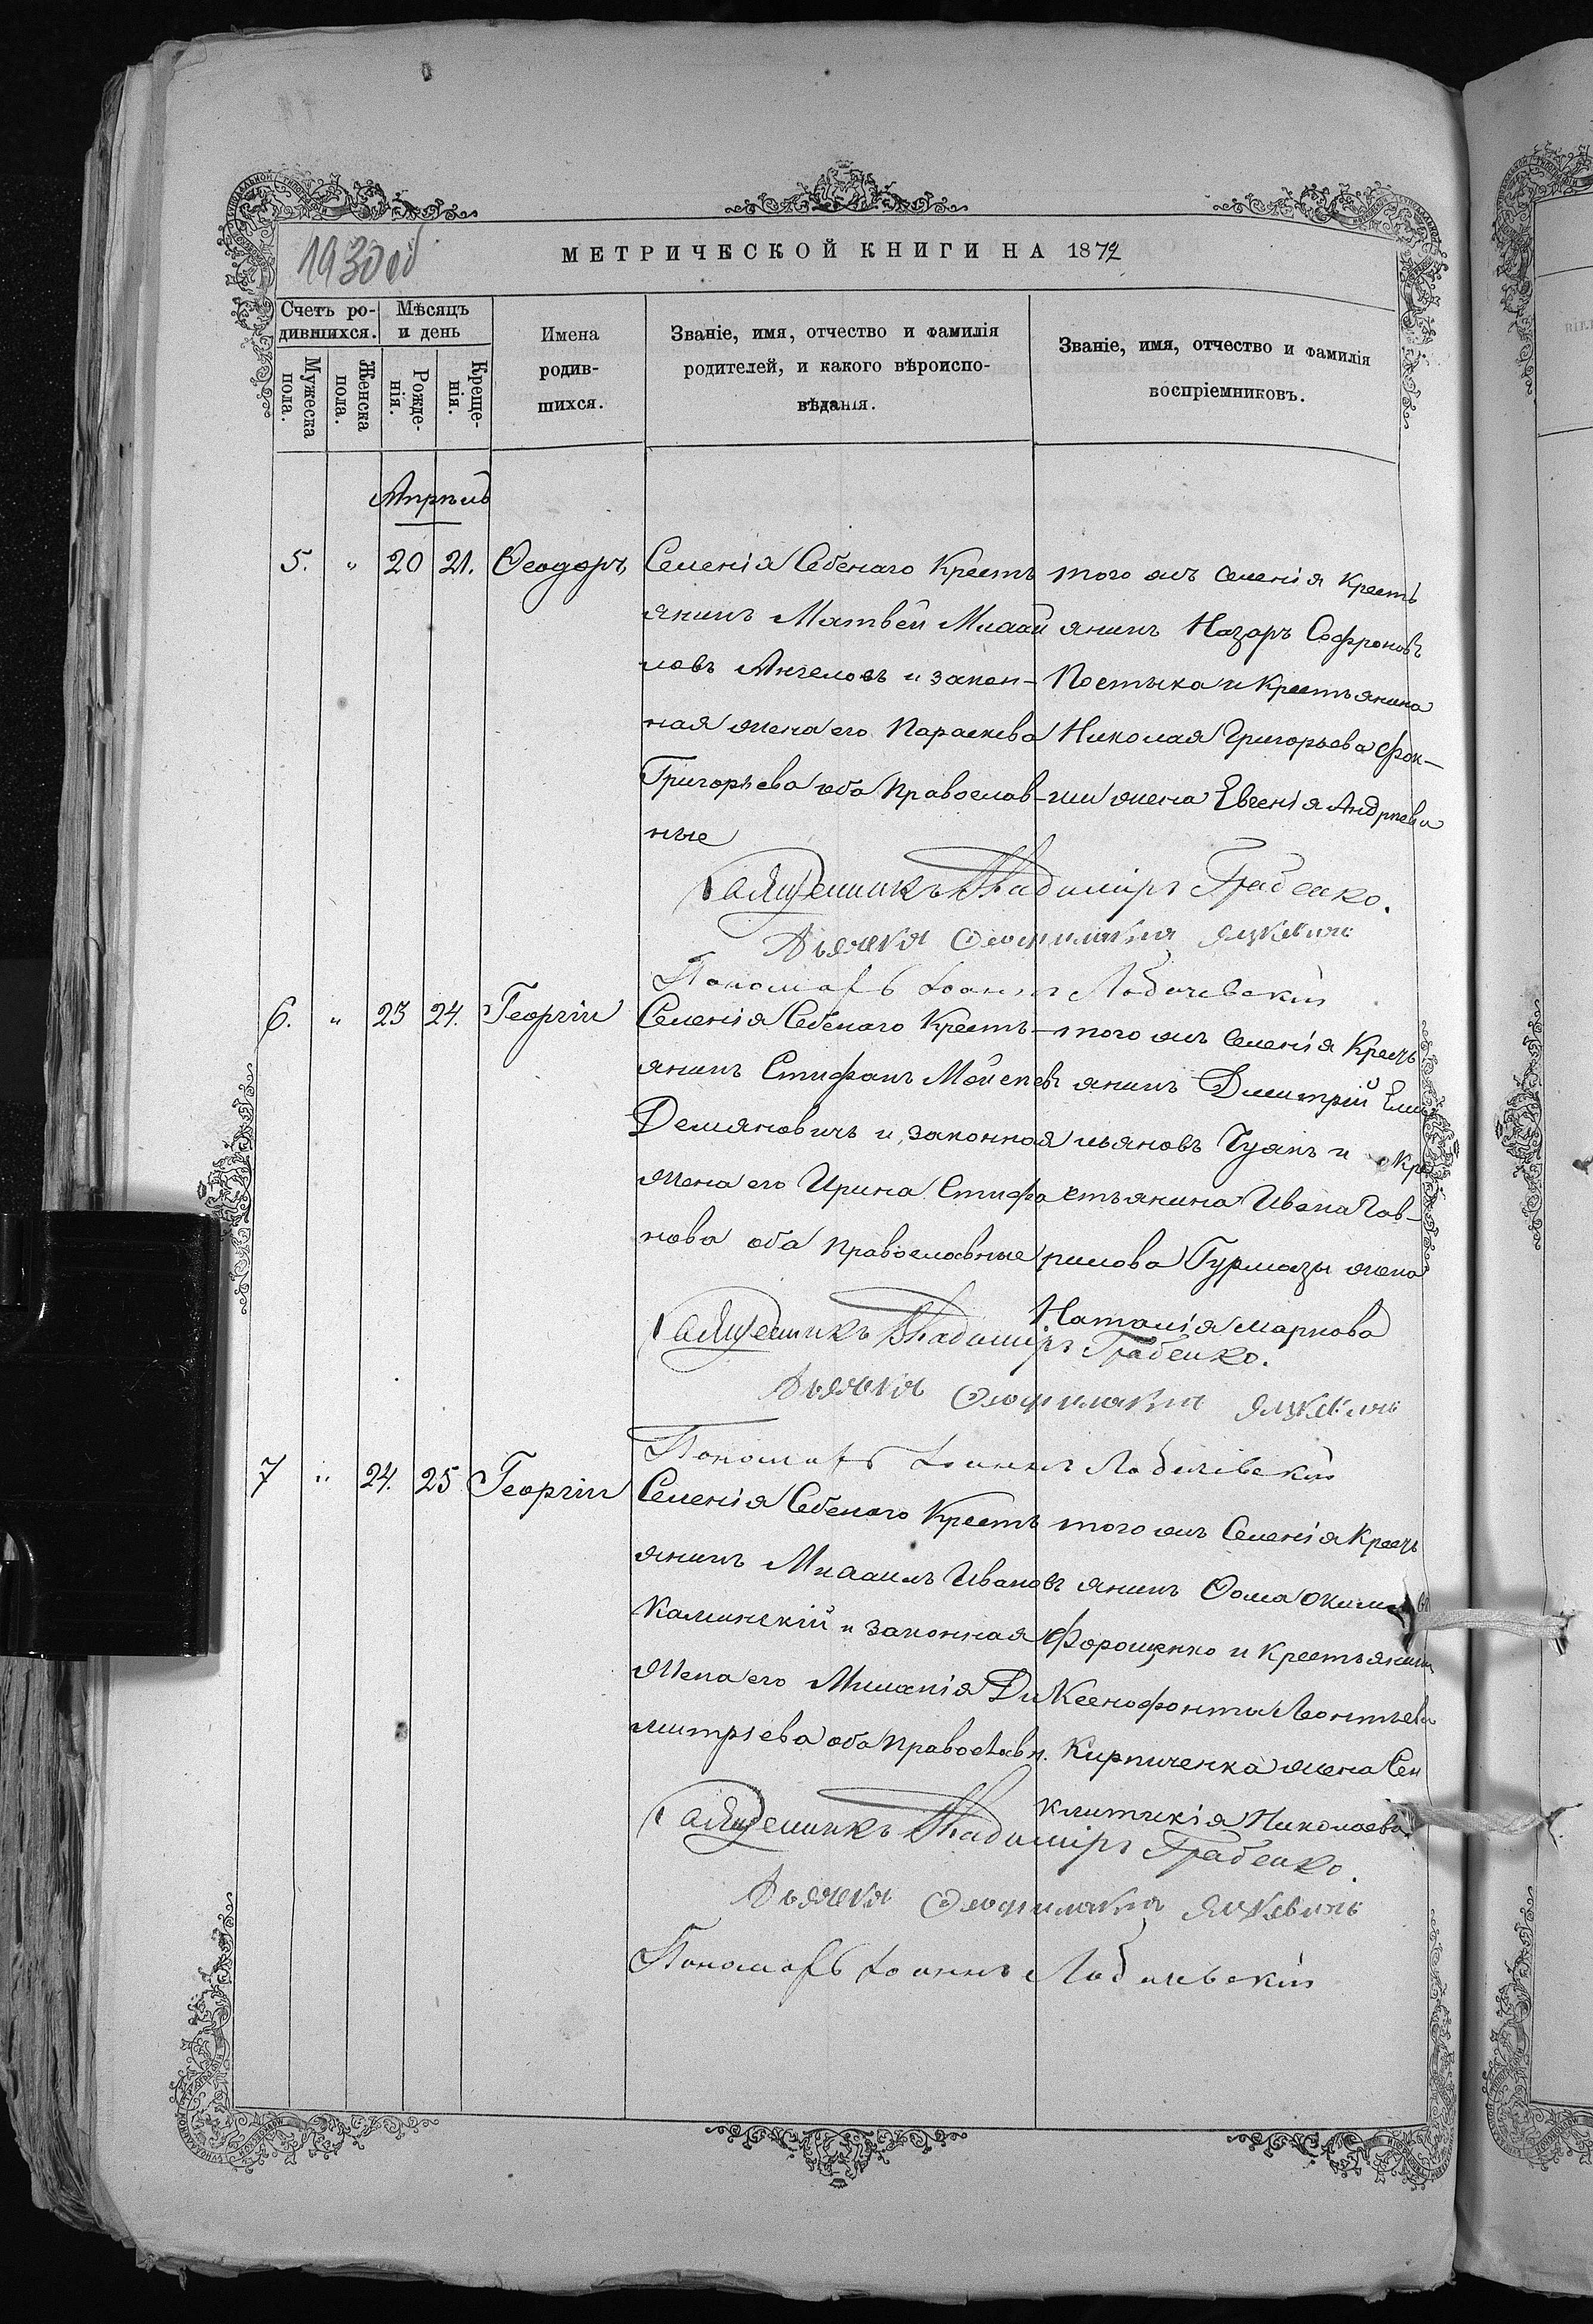 193 об
МЕТРИЧЕСКОЙ КНИГИ НА 1872
Счетъ ро-
дившихся.
Мѣсяцъ
и день
Мужеска
пола.
Женска
пола.
Рожде-
нія.
Креще-
нія.
Имена
родив-
шихся.
Званіе, имя, отчество и фамилія
родителей, и какого вѣроиспо-
вѣданія.
Званіе, имя, отчество и фамилія
воспріемниковъ.
Апрѣль
5. " 20 21. Ѳеодоръ
Селенія Себенаго Кресть
янинъ Матвей Михай
ловъ Ангеловъ и закон-
ная жена его Параскева
Григорьева оба православ-
ные
того жъ селенія кресть
янинъ Назаръ Софроновъ
Постыка и Крестьянина
Николая Григорьева Фок-
ши жена Евгенія Андреева
Священникъ Владиміръ Грабенко.
Дьячекъ Ѳеофилактъ Яцкевичъ
Пономарь Іоаннъ Лобачевскій
6. " 23 24. Георгій
Селенія Себенаго Кресть-
янинъ Стифанъ Мойсеевъ
Демяновичъ и законная
жена его Ирина Стифа
нова оба православные
того жъ селенія Кресть
янинъ Димитрій Еми
льяновъ Чуякъ и Кре
стьянина Ивана Гав-
рилова Гурмазы жена
Наталія Маркова
Священникъ Владиміръ Грабенко.
Дьячекъ Ѳеофилактъ Яцкевичъ
Пономарь Іоаннъ Лобачевскій
7 " 24. 25 Георгій
Селенія Себенаго Кресть
янинъ Михаилъ Ивановъ
Калинскій и законная
жена его Миланія Ди
митріева оба православн.
того жъ Селенія Кресть
янинъ Ѳома
Форощенко и Крестьянина
Ксенофонта Леонтьева
Кирпиченка жена Син
клитикія Николаева
Священникъ Владиміръ Грабенко.
Дьячекъ Ѳеофилактъ Яцкевичъ
Пономарь Іоаннъ Лобачевскій